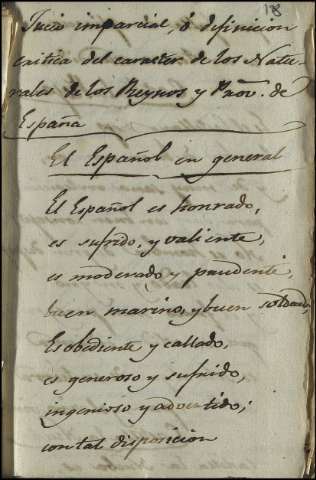 18
Juicio imparcial, ó definicion
critica del caracter de los Natu-
rales de los Reynos y Prov.s de
España
El Español en general
El Español es honrado,
es sufrido, y valiente,
es moderado y prudente,
buen marino, y buen soldado,
Es obediente y callado,
es generoso y sufrido,
ingenioso y advertido;
con tal disposicion